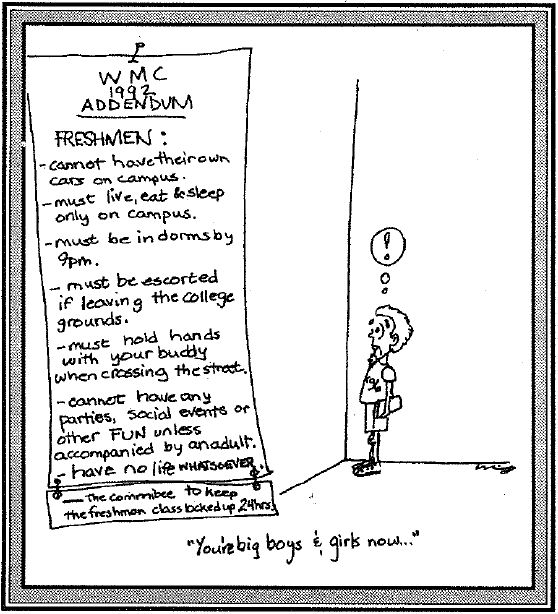 WMC
1992
ADDENDUM
FRESHMEN:
- cannot have their own
cars on campus.
- must live, eat & sleep
only on campus.
- must be in dorms by
9pm.
- must be escorted
if leaving the college
grounds.
- must hold hands
with your buddy
when crossing the street.
- cannot have any
parties, social events or
other FUN unless
accompanied by an adult.
- have no life WHATSOEVER.
— The commibee to keep
the freshman class locked up 24hrs.
!
"You're big boys & girls now..."